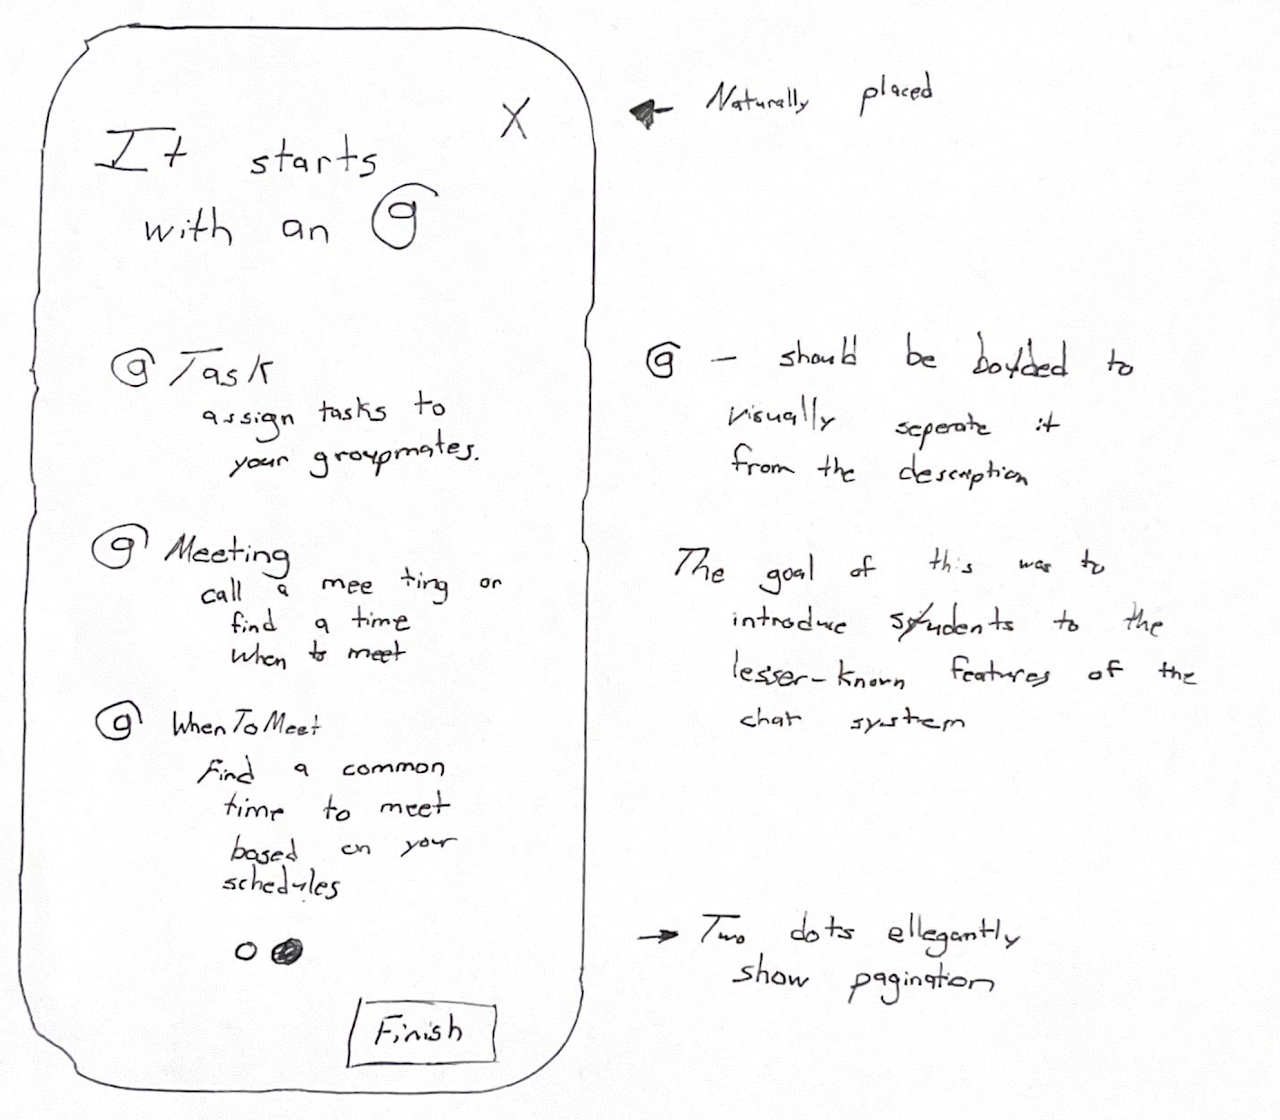 X
It starts
with an @
@ Task
assign tasks to
your groupmates.
@ Meeting
call a mee ting or
find a time
when to meet
@ When To Meet
Find a common
time to meet
based on your
schedules
Finish
Naturally placed
@ - should be bolded to
visually seperate it
from the description
The goal of this was to
introduce students to the
lesser-known features of the
chat system
Two dots ellegantly
show pagination